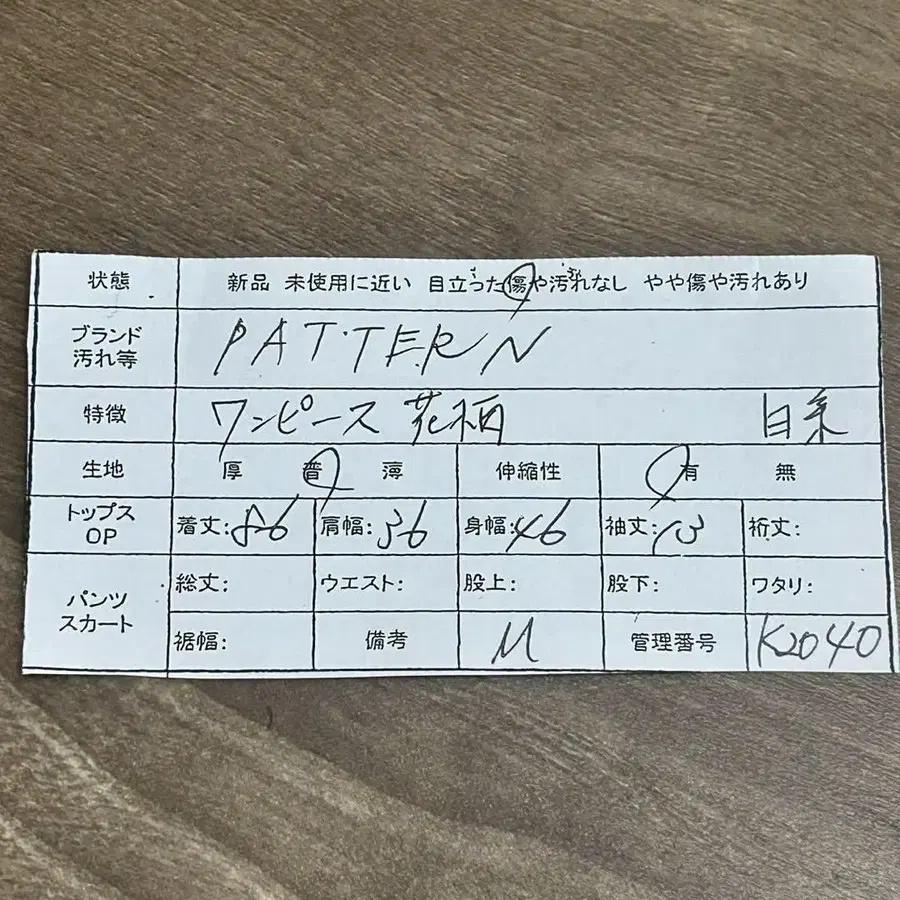 状態 新品 未使用に近い 目立った傷や汚れなし やや傷や汚れあり
ブランド
汚れ等 PATTERN
特徴 ワンピース 花柄 白系
生地 厚 普 薄 伸縮性 有 無
トップス
OP 着丈:86 肩幅:36 身幅:46 袖丈:13 裄丈:
パンツ
スカート
総丈: ウエスト: 股上: 股下: ワタリ:
裾幅: 備考 M 管理番号 K2040